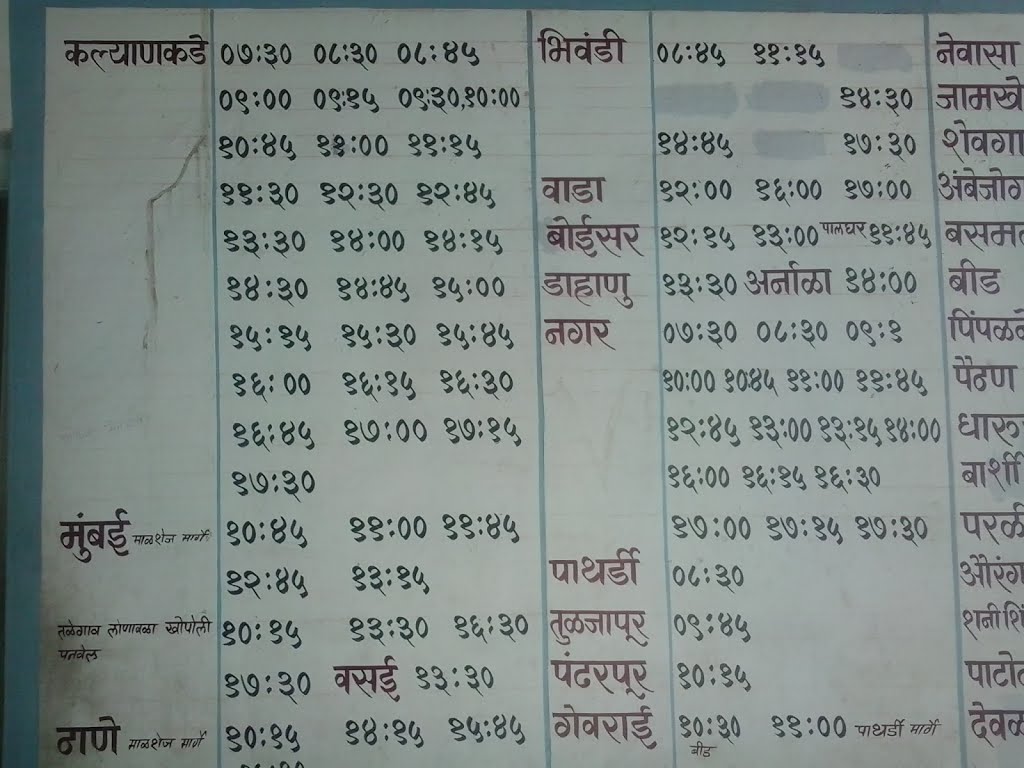 कल्याणकडे ०७:३० ०८:३० ०८:४५ भिवंडी ०८:४५ ११:१५ नेवासा
०९:०० ०९:१५ ०९:३०,१०:०० १४:३० जामखे
१०:४५ ११:०० ११:१५ १४:४५ १७:३० शेवगा
११:३० १२:३० १२:४५ वाडा १२:०० १६:०० १७:०० अंबेजोग
१३:३० १४:०० १४:१५ बोईसर १२:१५ १३:०० पालघर ११:४५ बसमत
१४:३० १४:४५ १५:०० डाहाणु १३:३० अर्नाळा १४:०० बीड
१५:१५ १५:३० १५:४५ नगर ०७:३० ०८:३० ०९:१ पिंपळवे
१६:०० १६:१५ १६:३० १०:०० १०:४५ ११:०० ११:४५ पैठण
१६:४५ १७:०० १७:१५ १२:४५ १३:०० १३:१५ १४:०० धारु
१७:३० १६:०० १६:१५ १६:३० बार्शी
मुंबई माळशेज मार्गे १०:४५ ११:०० ११:४५ १७:०० १७:१५ १७:३० परळी
१२:४५ १३:१५ पाथर्डी ०८:३० औरंग
तळेगाव लोणावळा खोपोली १०:१५ १३:३० १६:३० तुळजापूर ०९:४५ शनीशिं
पनवेल
१७:३० वसई १३:३० पंढरपूर १०:१५ पाटो
ठाणे माळशेज मार्गे १०:१५ १४:१५ १५:४५ गेवराई १०:३० ११:०० पाथर्डी मार्गे देवळ
बीड